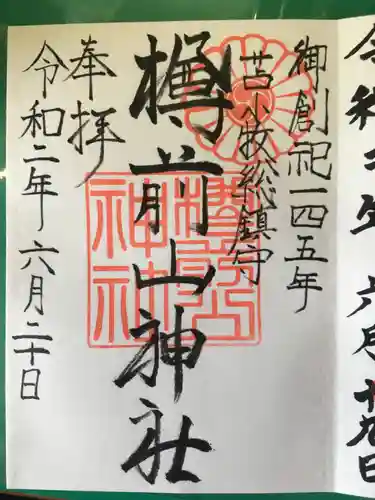 令和二年 六月 十九日
御創祀一四五年
苫小牧総鎮守
樽前山神社
奉拝
令和二年 六月二十日